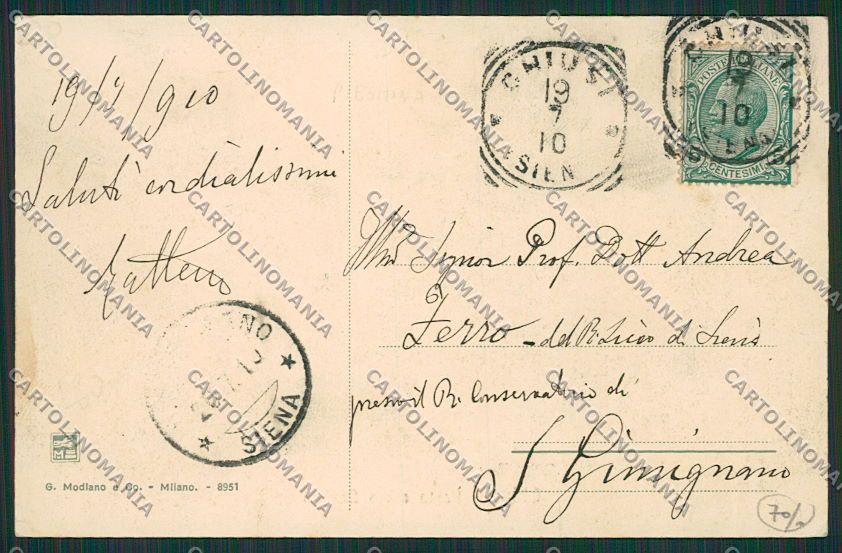 19/7/910
Saluti cordialissimi
Matteo
CHIUSI
19
7
10
SIENA
CHIUSI
19
7
10
SIENA
POSTE ITALIANE
CENTESIMI
Signor Prof. Dott Andrea
Ferro - del R. Liceo di Siena
presso il R. Conservatorio di
S Gimignano
ANO
SIENA
M
G. Modiano e Co. - Milano. - 8951
70/2
CARTOLINOMANIA